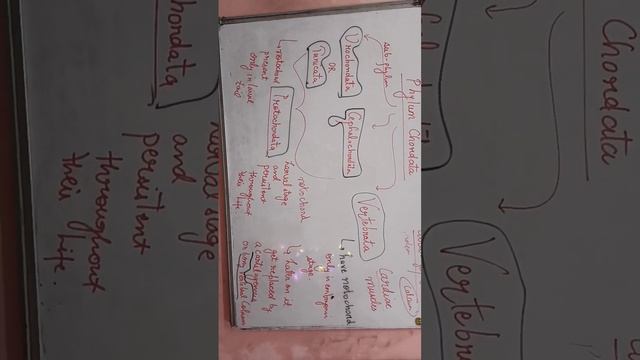 Phylum Chordata
sub-phylum
Urochordata
OR
Tunicata
Cephalochodata
Vertebrata
Protochordata
notochord
present
only in larval
tail
notochord
Larval stage
and
persistent
throughout
their life.
have notochord
only in embryonic
stage.
Later on it
get replaced by
a cartilagenous
or bony
Cardiac
muscles
Chordata
Vertebra
chordata
and
persistent
throughout
their life.